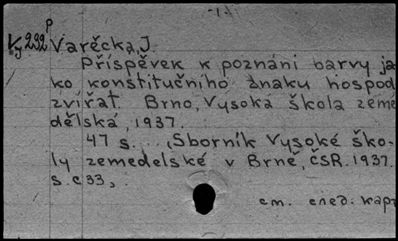 -1-
p
Vy232 Varěcka, J.
Příspěvek k poznání barvy ja
ko konstitučního znaku hospod
zvířat. Brno, Vysoká škola zeme
dělská, 1937.
47 s. ... (Sborník Vysoké ško-
ly zemedelské v Brně, ČSR. 1937.
s. c33,
см. след. карт